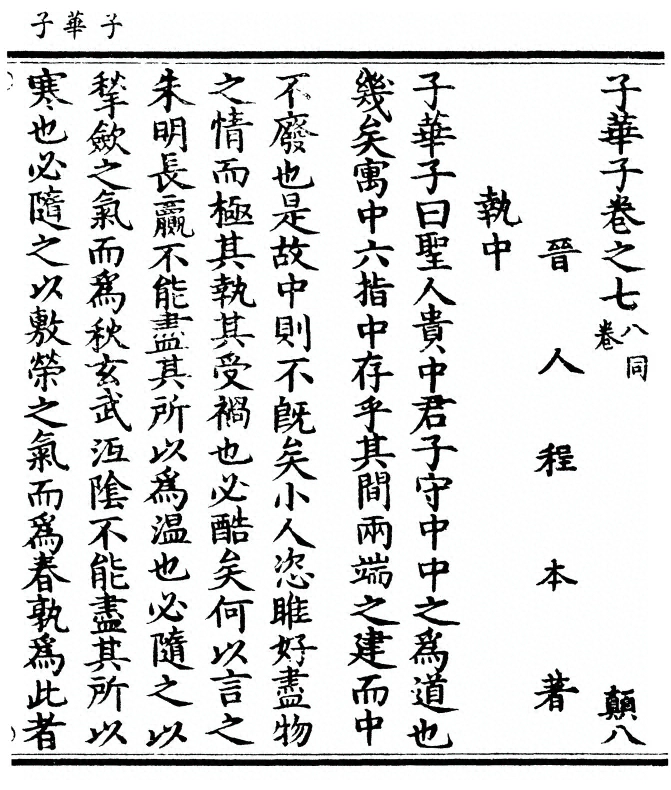 子華子
子華子卷之七 八同卷 顛八
晉人程本著
執中
子華子曰聖人貴中君子守中中之爲道也
幾矣寓中六指中存乎其間兩端之建而中
不廢也是故中則不旣矣小人恣睢好盡物
之情而極其執其受禍也必酷矣何以言之
朱明長贏不能盡其所以爲温也必隨之以
揫歛之氣而爲秋玄武沍陰不能盡其所以
寒也必隨之以敷榮之氣而爲春孰爲此者